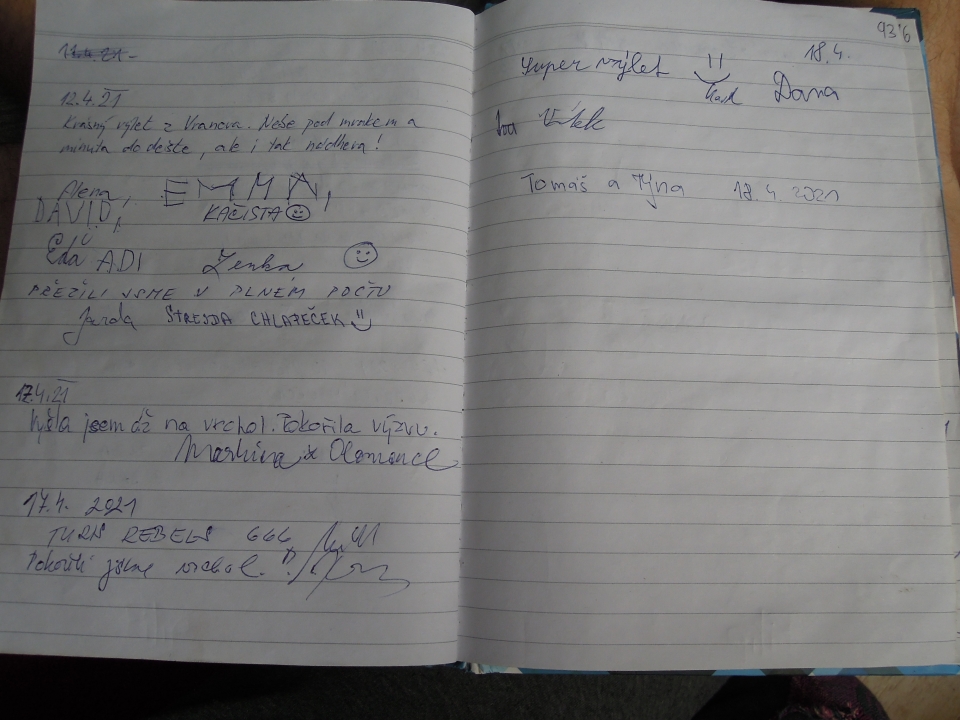 11.4.21
12.4.21
Krásný výlet z Vranova. Neše pod mrakem a
minuta do deště, ale i tak nádhera!
Alena,
EMMA,
DAVID,
KAČISTA
Eda ADI Lenka
PŘEŽILI JSME V PLNÉM POČTU
Jarda STREJDA CHLAPEČEK
17.4.21
Vyšla jsem až na vrchol. Pokořila výzvu.
Martina Olomouc
17.4. 2021
TURN REBELS 666
Pokořili jsme vrchol.
93'6
18.4.
Super výlet
Dana
Iva
Tomáš a Týna 18.4 2021